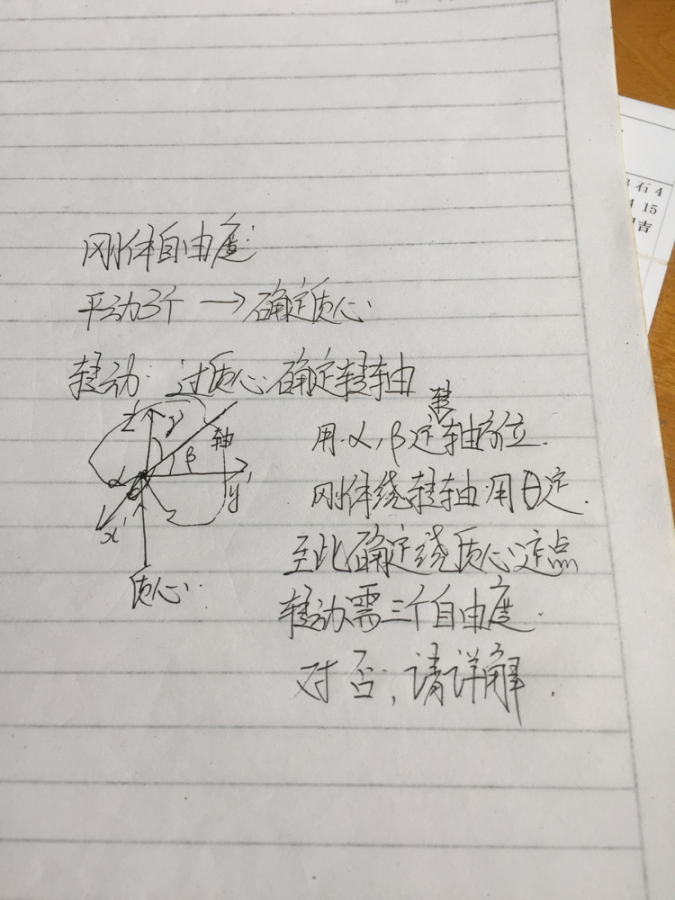 刚体自由度:
平动3个 → 确定质心.
转动: 过质心.确定转轴
转
用.α,β定轴方位.
z' γ 轴
β
α
y'
刚体绕转轴.用θ定.
x'
至此确定绕质心定点
质心.
转动需三个自由度.
对否,请详解.
石4
15
吉